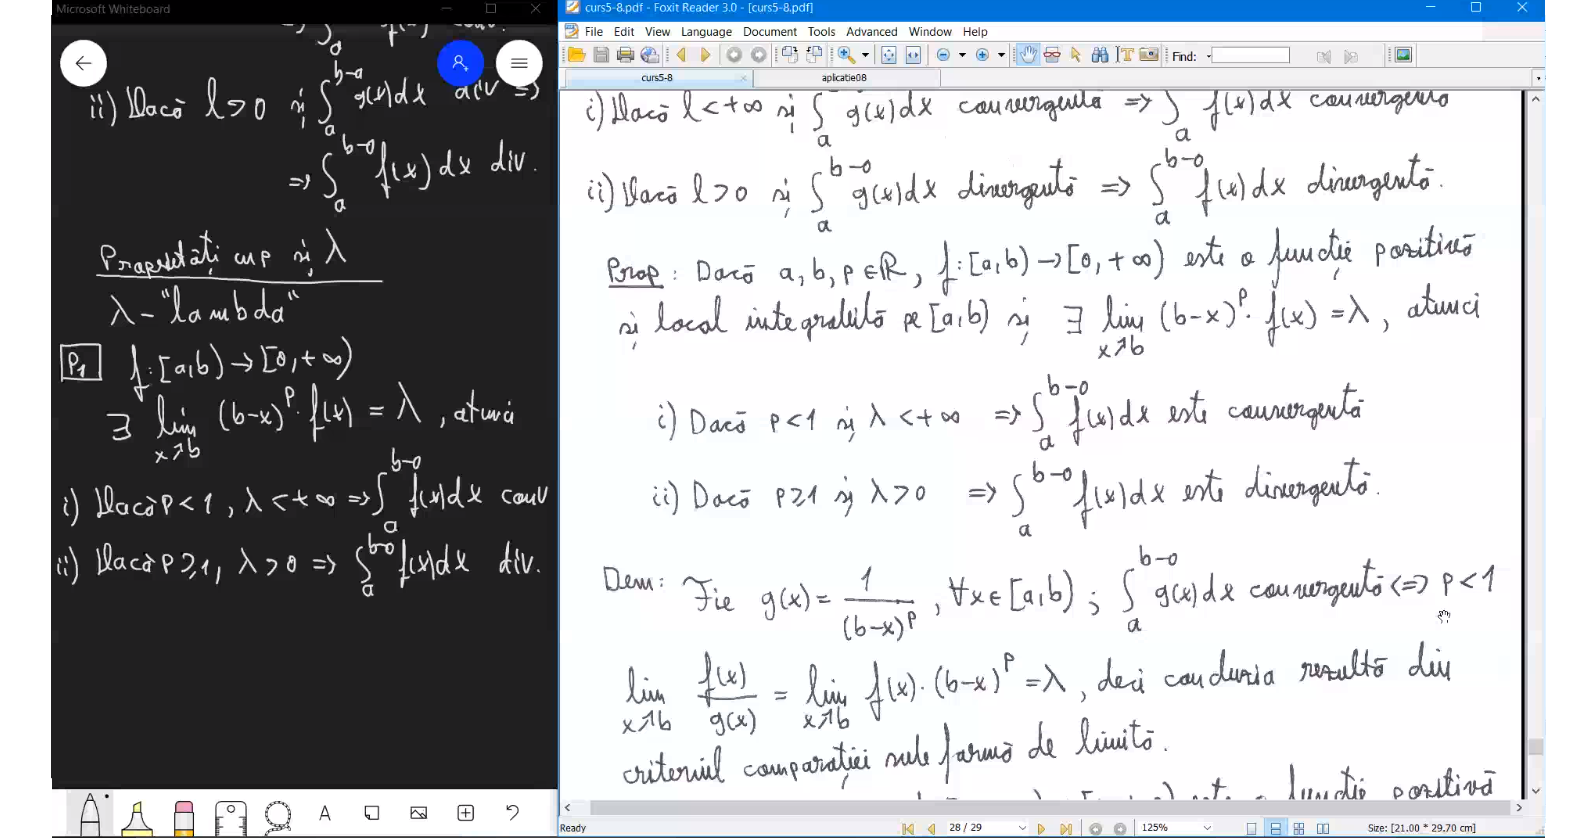 Microsoft Whiteboard
ii) Dacă l > 0 și ∫_a^{b-0} g(x)dx div =>
=> ∫_a^{b-0} f(x) dx div.
Proprietăți cu p și λ
λ - "lambda"
P1 f: [a,b) → [0,+∞)
∃ lim_{x↗b} (b-x)^p · f(x) = λ, atunci
i) Dacă p < 1, λ < +∞ => ∫_a^{b-0} f(x)dx conv
ii) Dacă p ≥ 1, λ > 0 => ∫_a^{b-0} f(x)dx div.
curs5-8.pdf - Foxit Reader 3.0 - [curs5-8.pdf]
File Edit View Language Document Tools Advanced Window Help
Find:
curs5-8 aplicatie08
i) Dacă l < +∞ și ∫_a g(x)dx convergentă => ∫_a f(x)dx convergentă
ii) Dacă l > 0 și ∫_a^{b-0} g(x)dx divergentă => ∫_a^{b-0} f(x)dx divergentă.
Prop: Dacă a, b, p ∈ ℝ, f: [a,b) → [0,+∞) este o funcție pozitivă
și local integrabilă pe [a,b) și ∃ lim_{x↗b} (b-x)^p · f(x) = λ, atunci
i) Dacă p < 1 și λ < +∞ => ∫_a^{b-0} f(x)dx este convergentă
ii) Dacă p ≥ 1 și λ > 0 => ∫_a^{b-0} f(x)dx este divergentă.
Dem: Fie g(x) = 1/(b-x)^p, ∀x ∈ [a,b); ∫_a^{b-0} g(x)dx convergentă <=> p < 1
lim_{x↗b} f(x)/g(x) = lim_{x↗b} f(x) · (b-x)^p = λ, deci concluzia rezultă din
criteriul comparației sub formă de limită.
este o funcție pozitivă
Ready 28 / 29 125% Size: [21.00 * 29.70 cm]